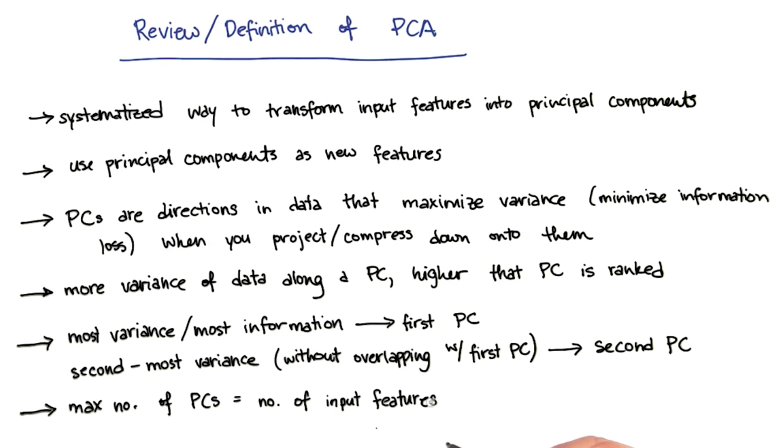 Review/Definition of PCA
→ systematized way to transform input features into principal components
→ use principal components as new features
→ PCs are directions in data that maximize variance (minimize information
loss) when you project/compress down onto them
→ more variance of data along a PC, higher that PC is ranked
→ most variance/most information → first PC
second-most variance (without overlapping w/first PC) → second PC
→ max no. of PCs = no. of input features